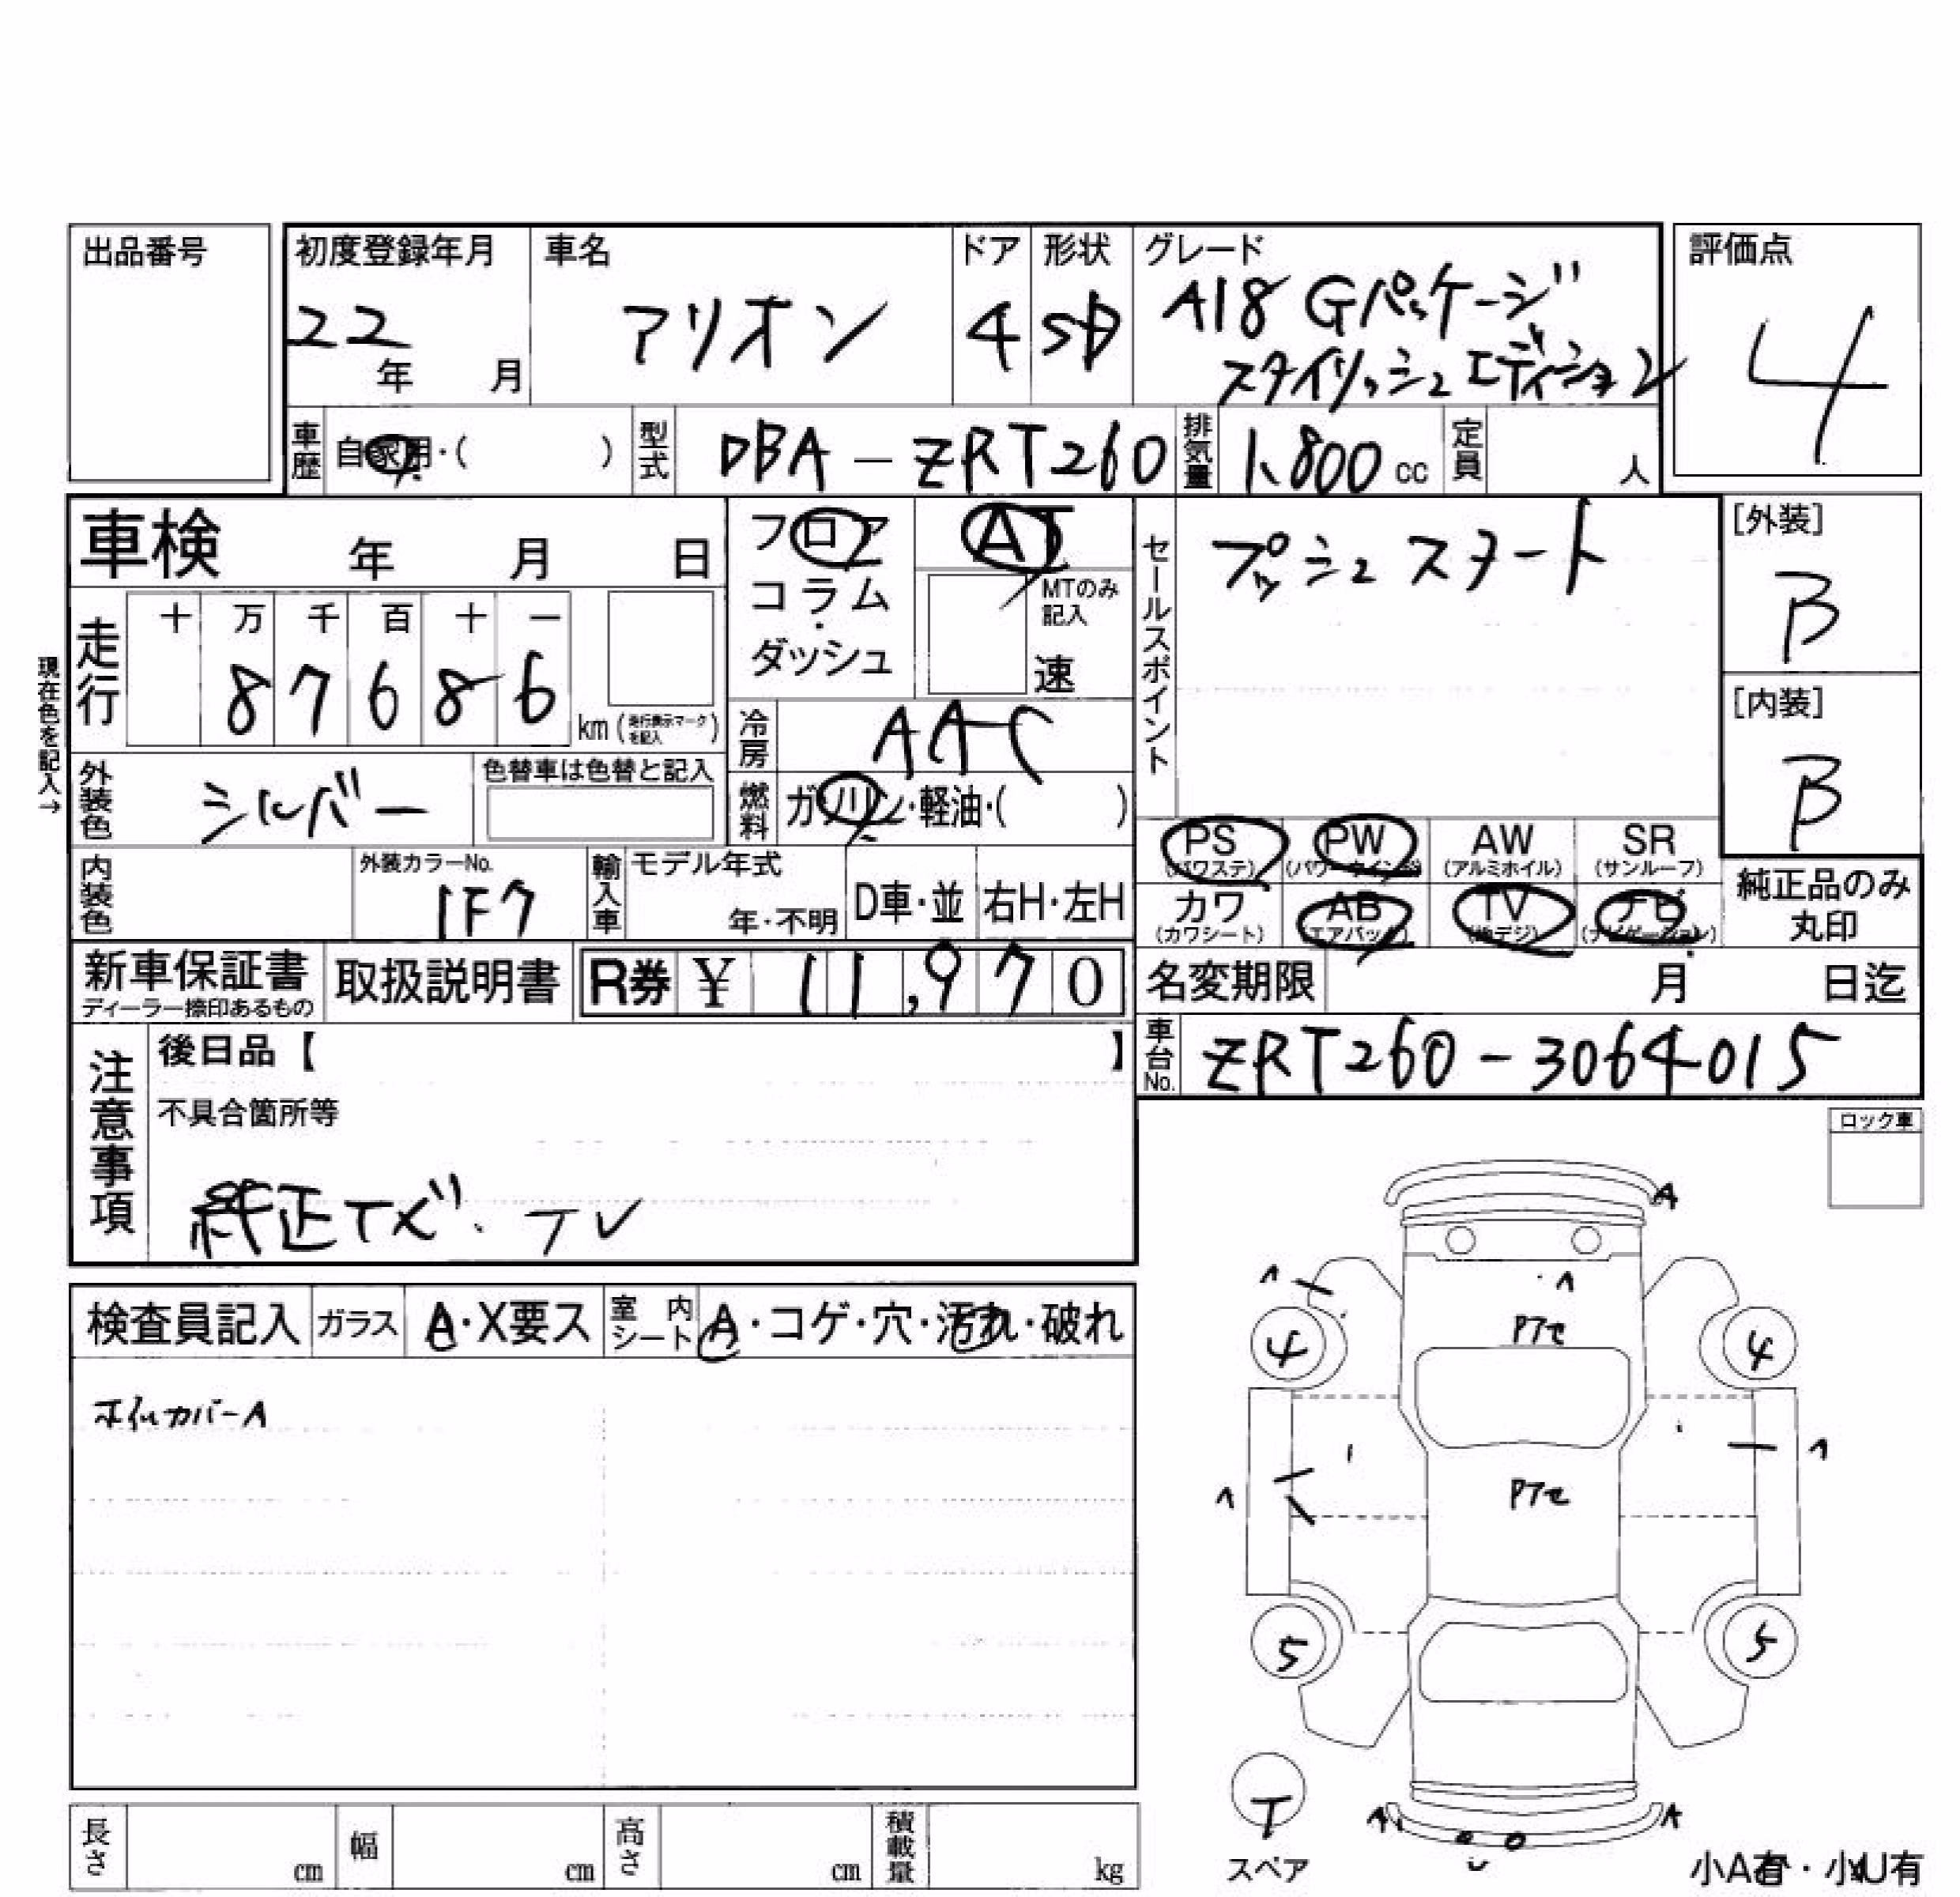 出品番号
初度登録年月 車名 ドア 形状 グレード 評価点
22 年 月 アリオン 4 SD A18 Gパッケージ 4
スタイリッシュエディション
車歴 自家用・( ) 型式 DBA-ZRT260 排気量 1,800 cc 定員 人
車検 年 月 日
フロア AT
コラム・ MTのみ記入
ダッシュ 速
セールスポイント プッシュスタート
[外装]
B
[内装]
B
現在色を記入→
走行 十 万 千 百 十 一
8 7 6 8 6 km (走行表示マークを記入)
冷房 AAC
外装色 シルバー 色替車は色替と記入
燃料 ガソリン・軽油・( )
PS PW AW SR
(パワステ) (パワーウインドウ) (アルミホイル) (サンルーフ)
カワ AB TV ナビ
(カワシート) (エアバック) (地デジ) (ナビゲーション)
純正品のみ
丸印
内装色 外装カラーNo. 1F7 輸入車 モデル年式 年・不明 D車・並 右H・左H
新車保証書 取扱説明書 R券 ¥ 11,970
ディーラー捺印あるもの
名変期限 月 日迄
車台No. ZRT260-3064015
注意事項 後日品【 】
不具合箇所等
純正ナビ・TV
ロック車
検査員記入 ガラス A・X要ス 室内シート A・コゲ・穴・汚れ・破れ
ホイルカバーA
A
A A
Pアセ
4 4
A A
Pアセ
5 5
T
スペア
A A
小A有・小U有
長さ cm 幅 cm 高さ cm 積載量 kg